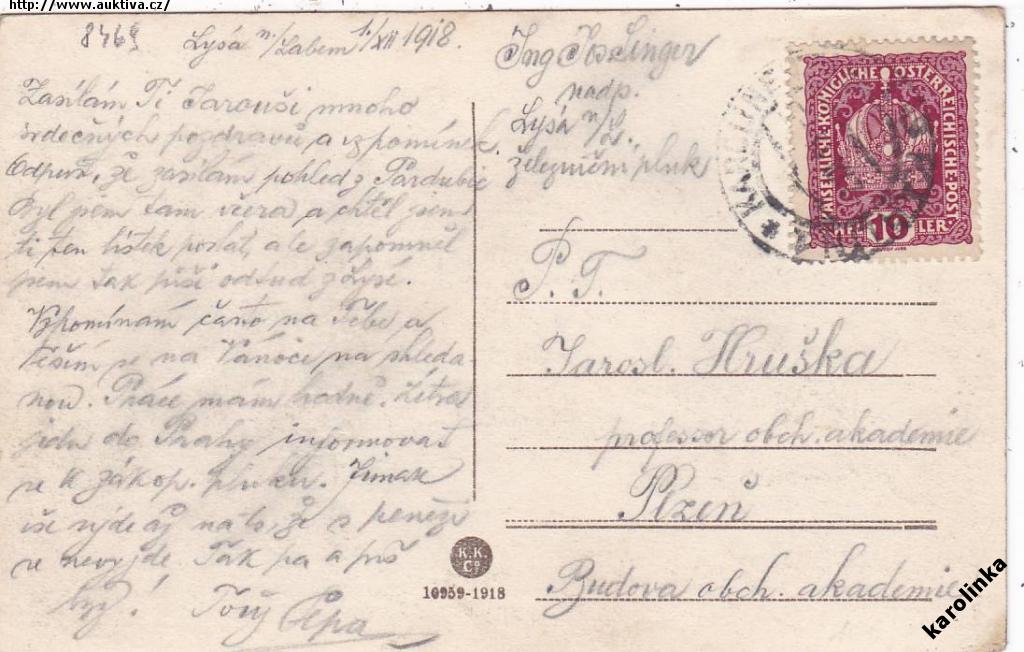 http://www.auktiva.cz/
8463
Lysá n/Labem 1./XII 1918.
Zasílám Ti Jarouši mnoho
srdečných pozdravů a vzpomínek.
Odpusť, že zasílám pohled z Pardubic
Byl jsem tam včera a chtěl jsem
ti ten lístek poslat, ale zapomněl
jsem tak píši odsud z Lysé.
Vzpomínám často na Tebe a
těším se na Vánoce na shleda
nou. Práce mám hodně. Zítra
jedu do Prahy informovat
se k zákop. pluku. Jinak
se na to, že s penězi
se nevyjde. Tak pa a piš
brzy! Tvůj Pepa
Ing Singer
nadp.
Lysá n/L.
železniční pluk
KAISERLICHE KÖNIGLICHE ÖSTERREICHISCHE POST
HELLER
10
P. T.
Jarosl. Hruška
professor obch. akademie
Plzeň
Budova obch. akademie
K.K.
Co
10959-1918
karolinka